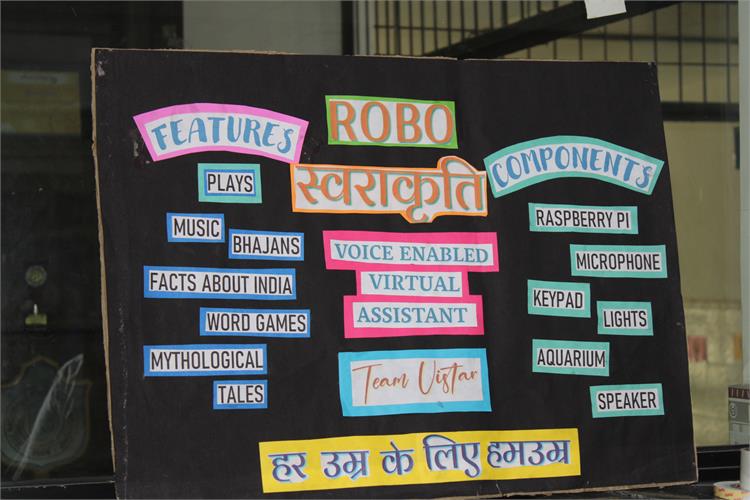 FEATURES
PLAYS
MUSIC
BHAJANS
FACTS ABOUT INDIA
WORD GAMES
MYTHOLOGICAL
TALES
ROBO
स्वराकृति
VOICE ENABLED
VIRTUAL
ASSISTANT
Team Vistar
COMPONENTS
RASPBERRY PI
MICROPHONE
KEYPAD
LIGHTS
AQUARIUM
SPEAKER
हर उम्र के लिए हमउम्र